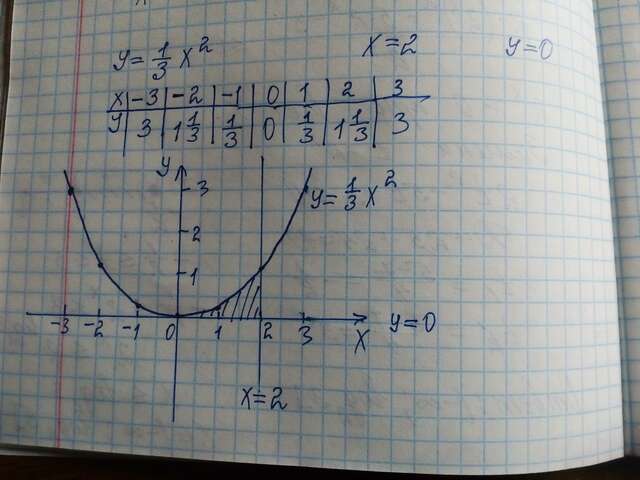 y = 1/3 x² x = 2 y = 0
x | -3 | -2 | -1 | 0 | 1 | 2 | 3
y | 3 | 1 1/3 | 1/3 | 0 | 1/3 | 1 1/3 | 3
y
3
y = 1/3 x²
2
1
-3 -2 -1 0 1 2 3 x y = 0
x = 2